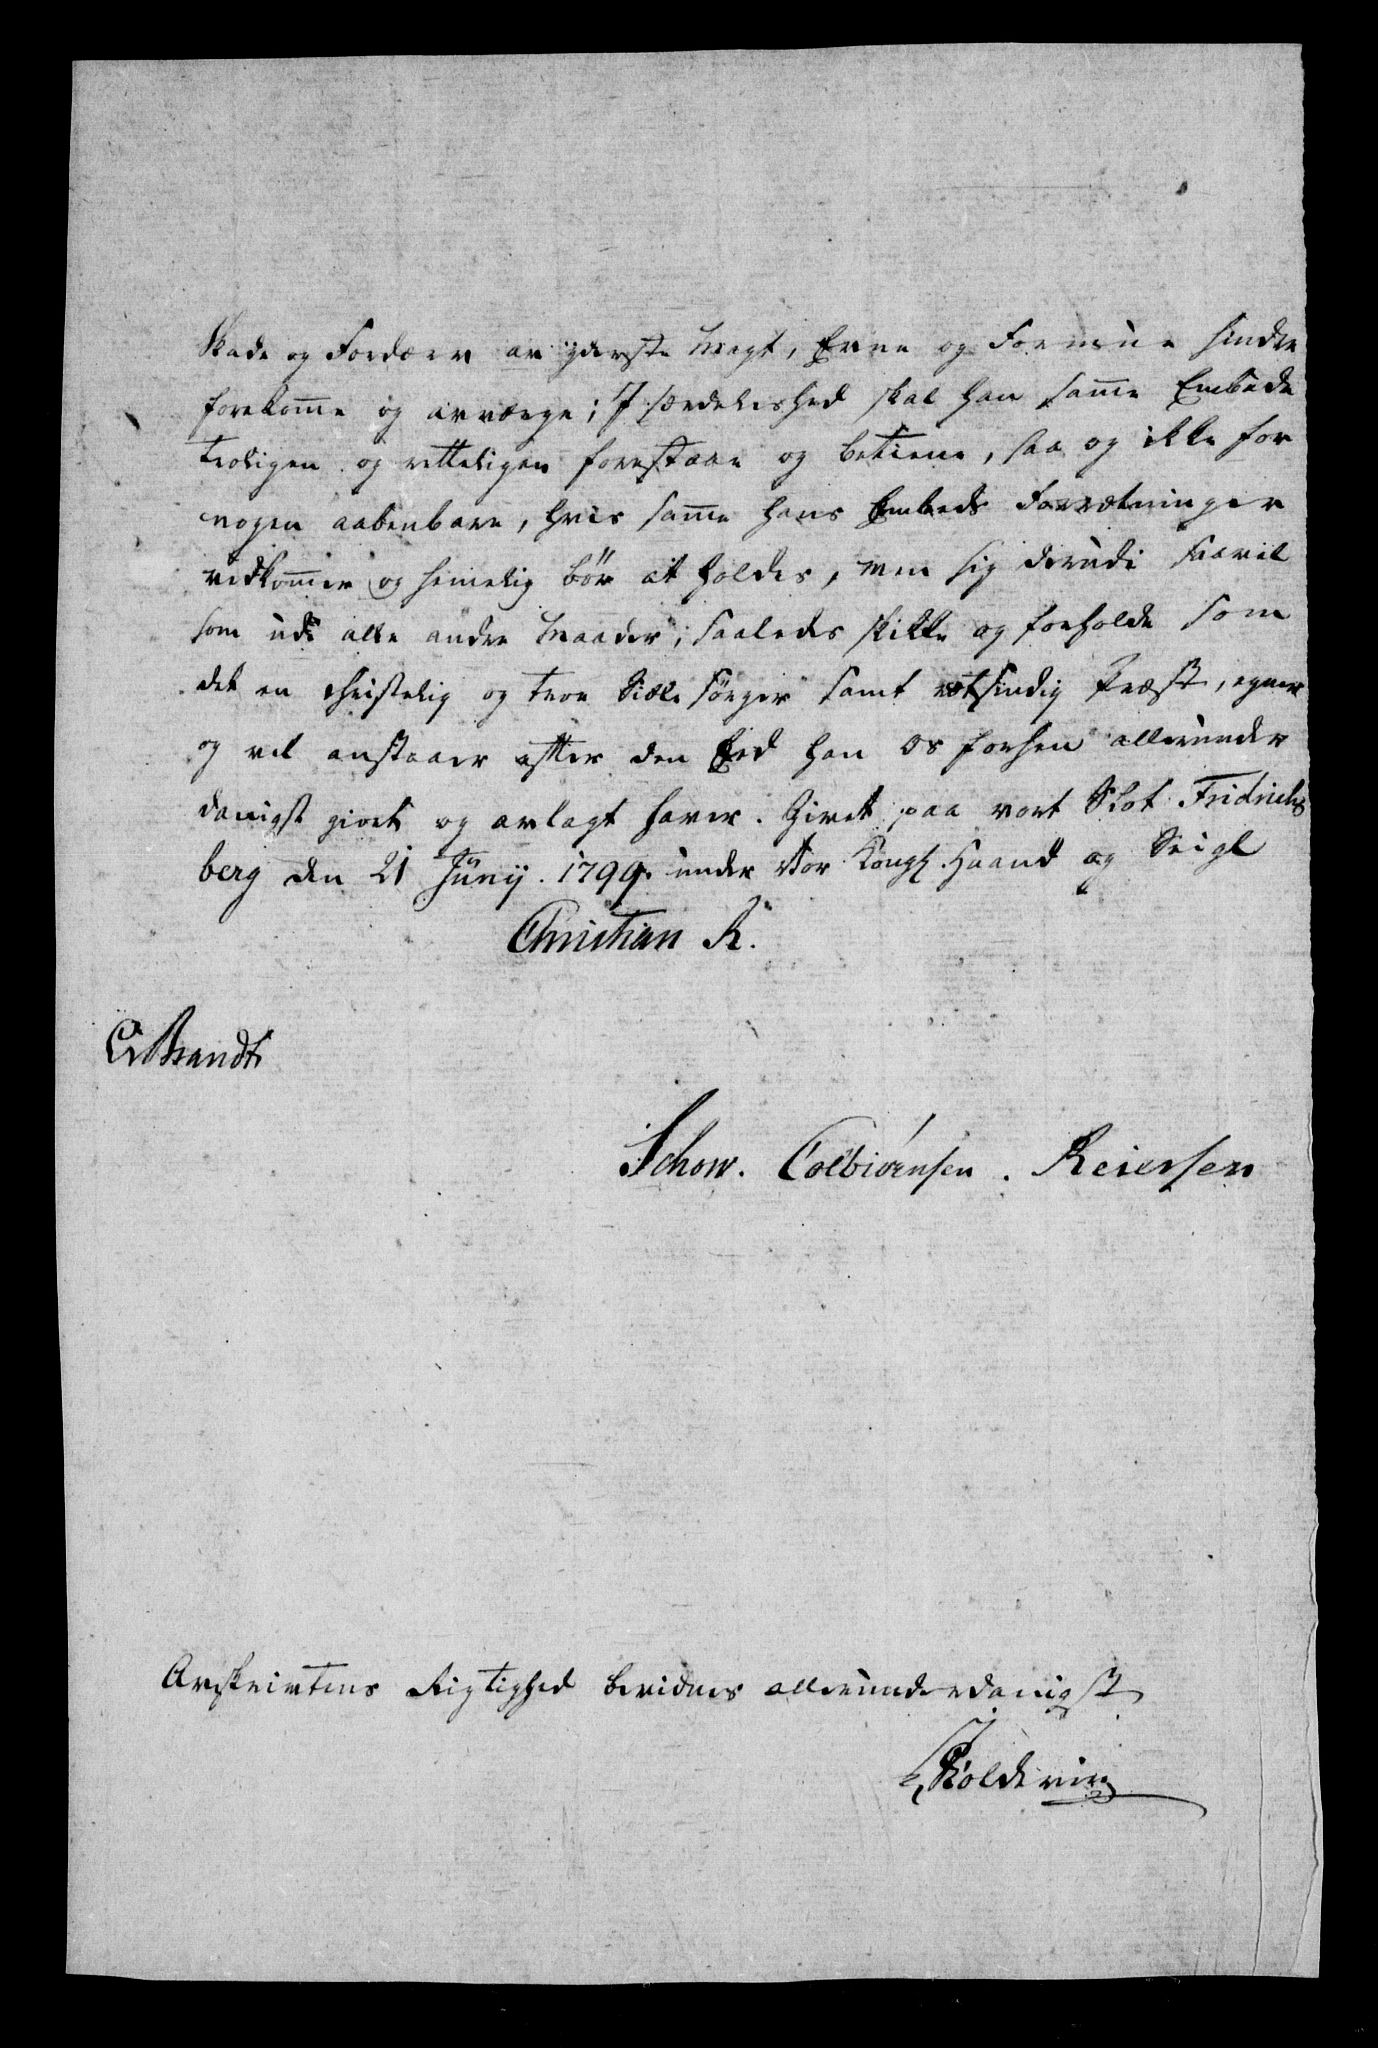 Skade og Fordærv av yderste Magt, Evne og Formue hindre
forekomme og avværge; J særdeleshed skal han samme Embede
troligen og retteligen forestaae og betiene, saa og ikke for
nogen aabenbare, hvis samme hans Embeds Forrætninger
vedkommer og hemelig bør at holdes, men sig derudi saavel
som udi alle andre Maader, saaledes skikke og forholde som
det en christelig og troe Siæle Sörger samt rætsindig Præst, egner
og vel anstaaer efter den Eed han os forhen allerunder
danigst giort og avlagt haver. Givet paa vort Slot Fridrichs
berg den 21 Junij. 1799. under Vor Kongl. Haand og Seigl
Christian R.
Brandt
Schow. Colbiörnsen. Reiersen
Avskrivtens Rigtighed bevidnes allerunderdanigst
Koldevin